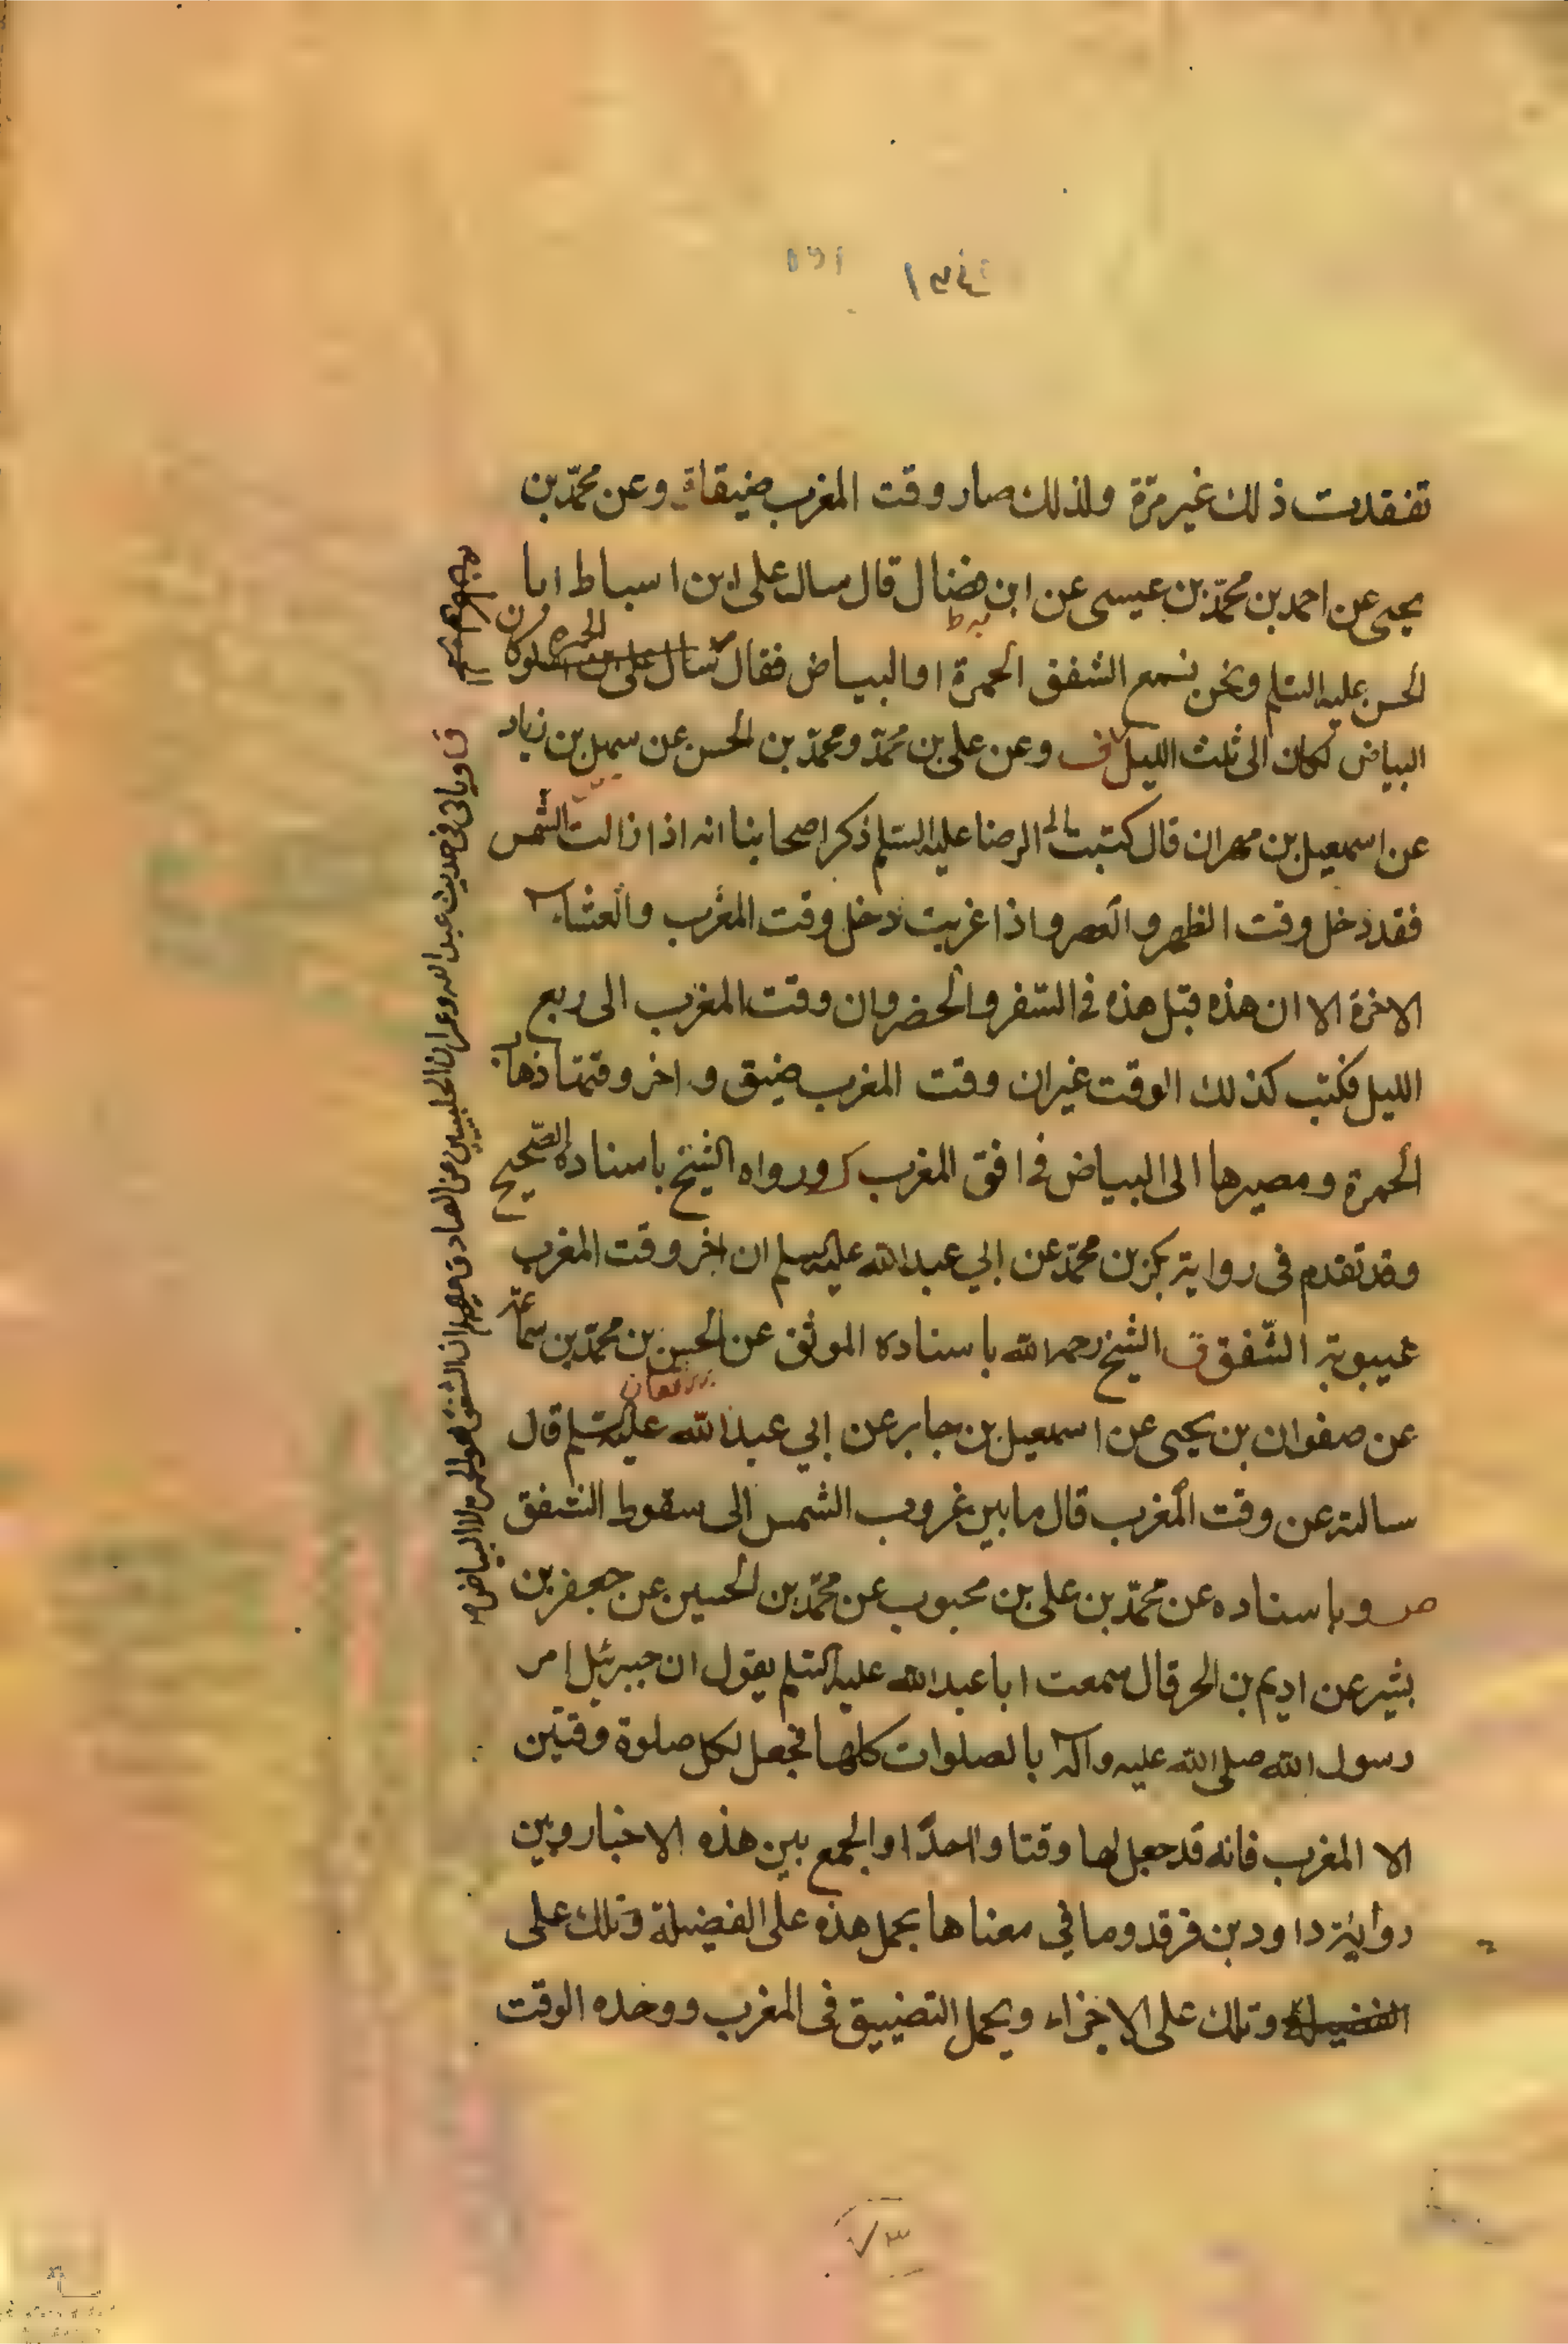 تفقدت ذلك غير مرة ولذلك صار وقت المغرب ضيقا ق وعن محمّد بن
يحيى عن احمد بن محمّد بن عيسى عن ابن فضال قال سال على ابن اسباط ابا
الحسن عليه السلم ونحن نسمع الشفق الحمرة او البياض فقال
البياض لكان الى ثلث الليل ف وعن على بن محمّد ومحمّد بن الحسن عن سهل بن زياد
عن اسمعيل بن مهران قال كتبت الى الرضا عليه السلم ذكر اصحابنا انه اذا زالت الشمس
فقد دخل وقت الظهر والعصر واذا غربت دخل وقت المغرب والعشاء
الاخرة الا ان هذه قبل هذه فى السفر والحضر وان وقت المغرب الى ربع
الليل فكتب كذلك الوقت غير ان وقت المغرب ضيق واخر وقتها ذهاب
الحمرة ومصيرها الى البياض فى افق المغرب ورواه الشيخ باسناده الصّحيح
وقد تقدم فى رواية بكر بن محمّد عن ابي عبد الله عليه السلم ان اخر وقت المغرب
غيبوبة الشّفق ق الشيخ رحمه الله باسناده الموثق عن الحسن بن محمّد بن سماعة
عن صفوان بن يحيى عن اسمعيل بن جابر عن ابي عبد الله عليه السلم قال
سالته عن وقت المغرب قال ما بين غروب الشمس الى سقوط الشفق
ص وباسناده عن محمّد بن على بن محبوب عن محمّد بن الحسين عن جعفر بن
بشير عن اديم بن الحر قال سمعت ابا عبد الله عليه السلم يقول ان جبرئيل امر
رسول الله صلى الله عليه وآله بالصلوات كلها فجعل لكل صلوة وقتين
الا المغرب فانه قد جعل لها وقتا واحدًا والجمع بين هذه الاخبار وبين
رواية داود بن فرقد وما في معناها بحمل هذه على الفضيلة وتلك على
الفضيلة وتلك على الاجزاء ويحمل التضييق فى المغرب ووحده الوقت
وياتى فى حديث عبد الله وعمران الحلبيين عن الصادق ان الشفق هو الحمرة لا البياض
٧٣